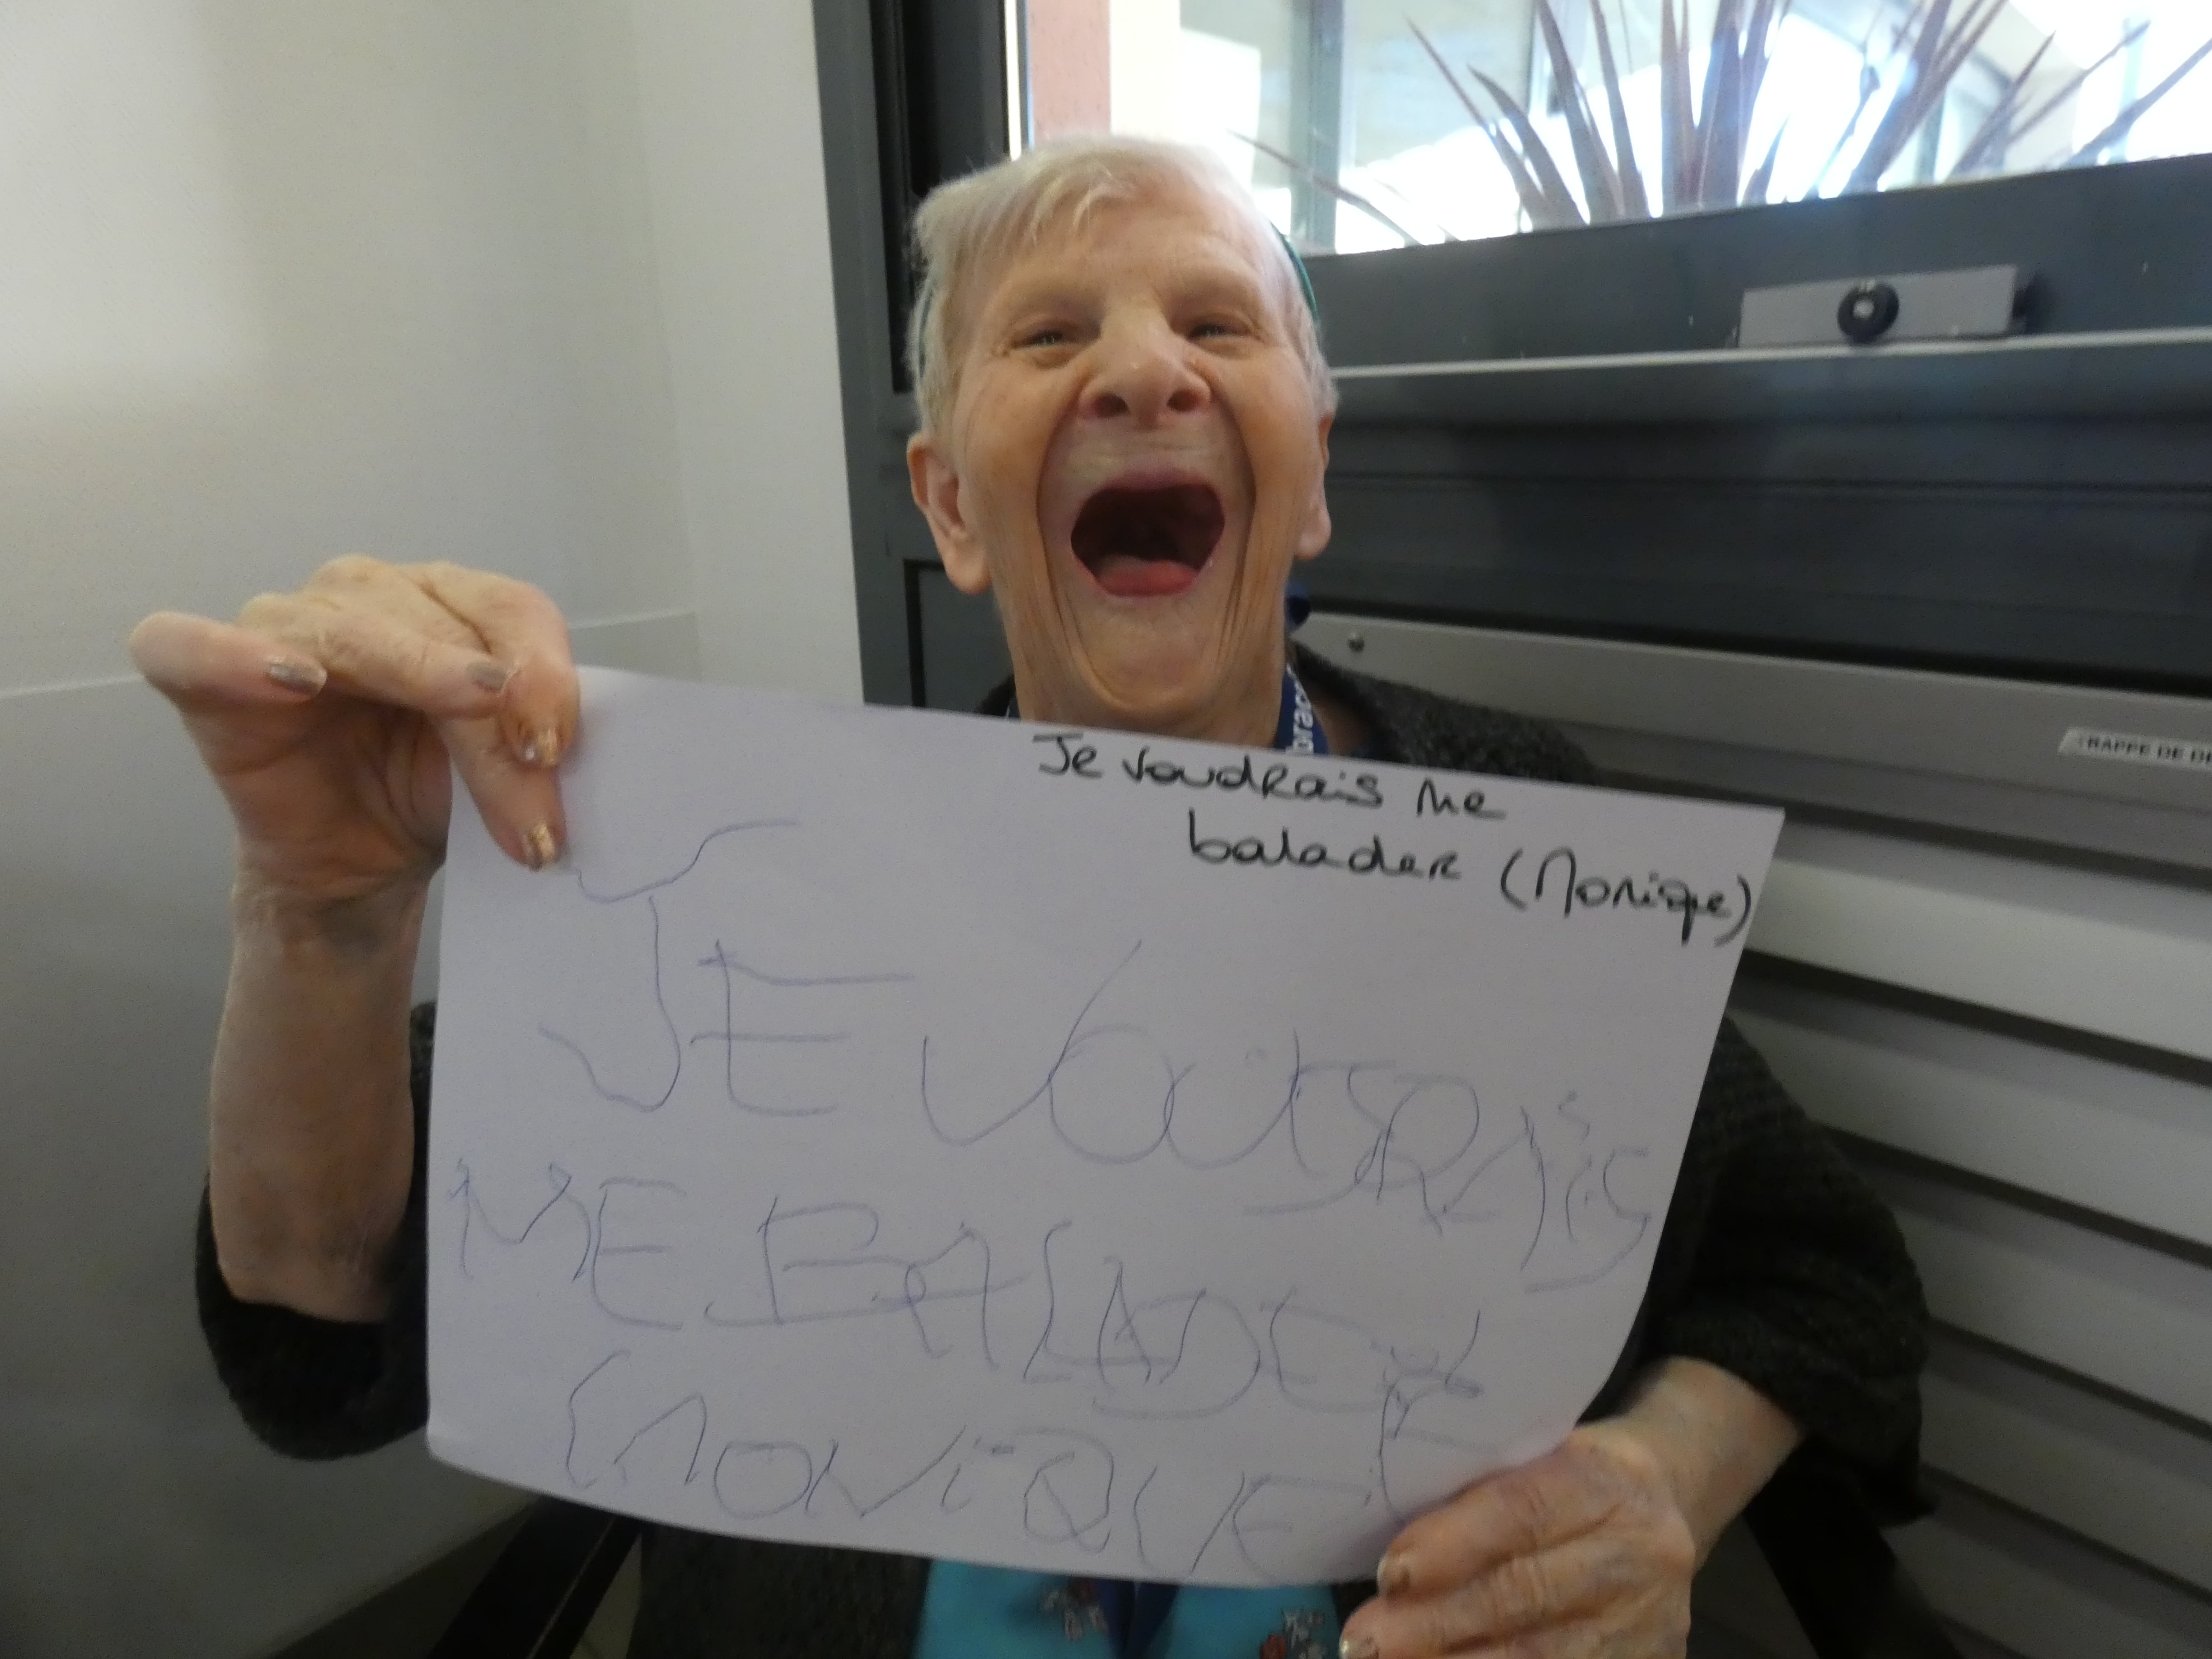 Je voudrais me
balader (Monique)
JE VOUDRAiS
ME BALADER
(MONiQUE
TRAPPE DE DE